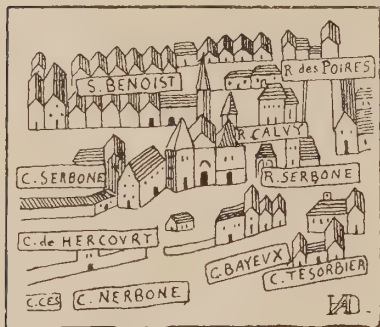 S. BENOIST
R. des POIRES
R. CALVY
C. SERBONE
R. SERBONE
C. de HERCOVRT
C. BAYEVX
C. TESORBIER
C.CES
C. NERBONE